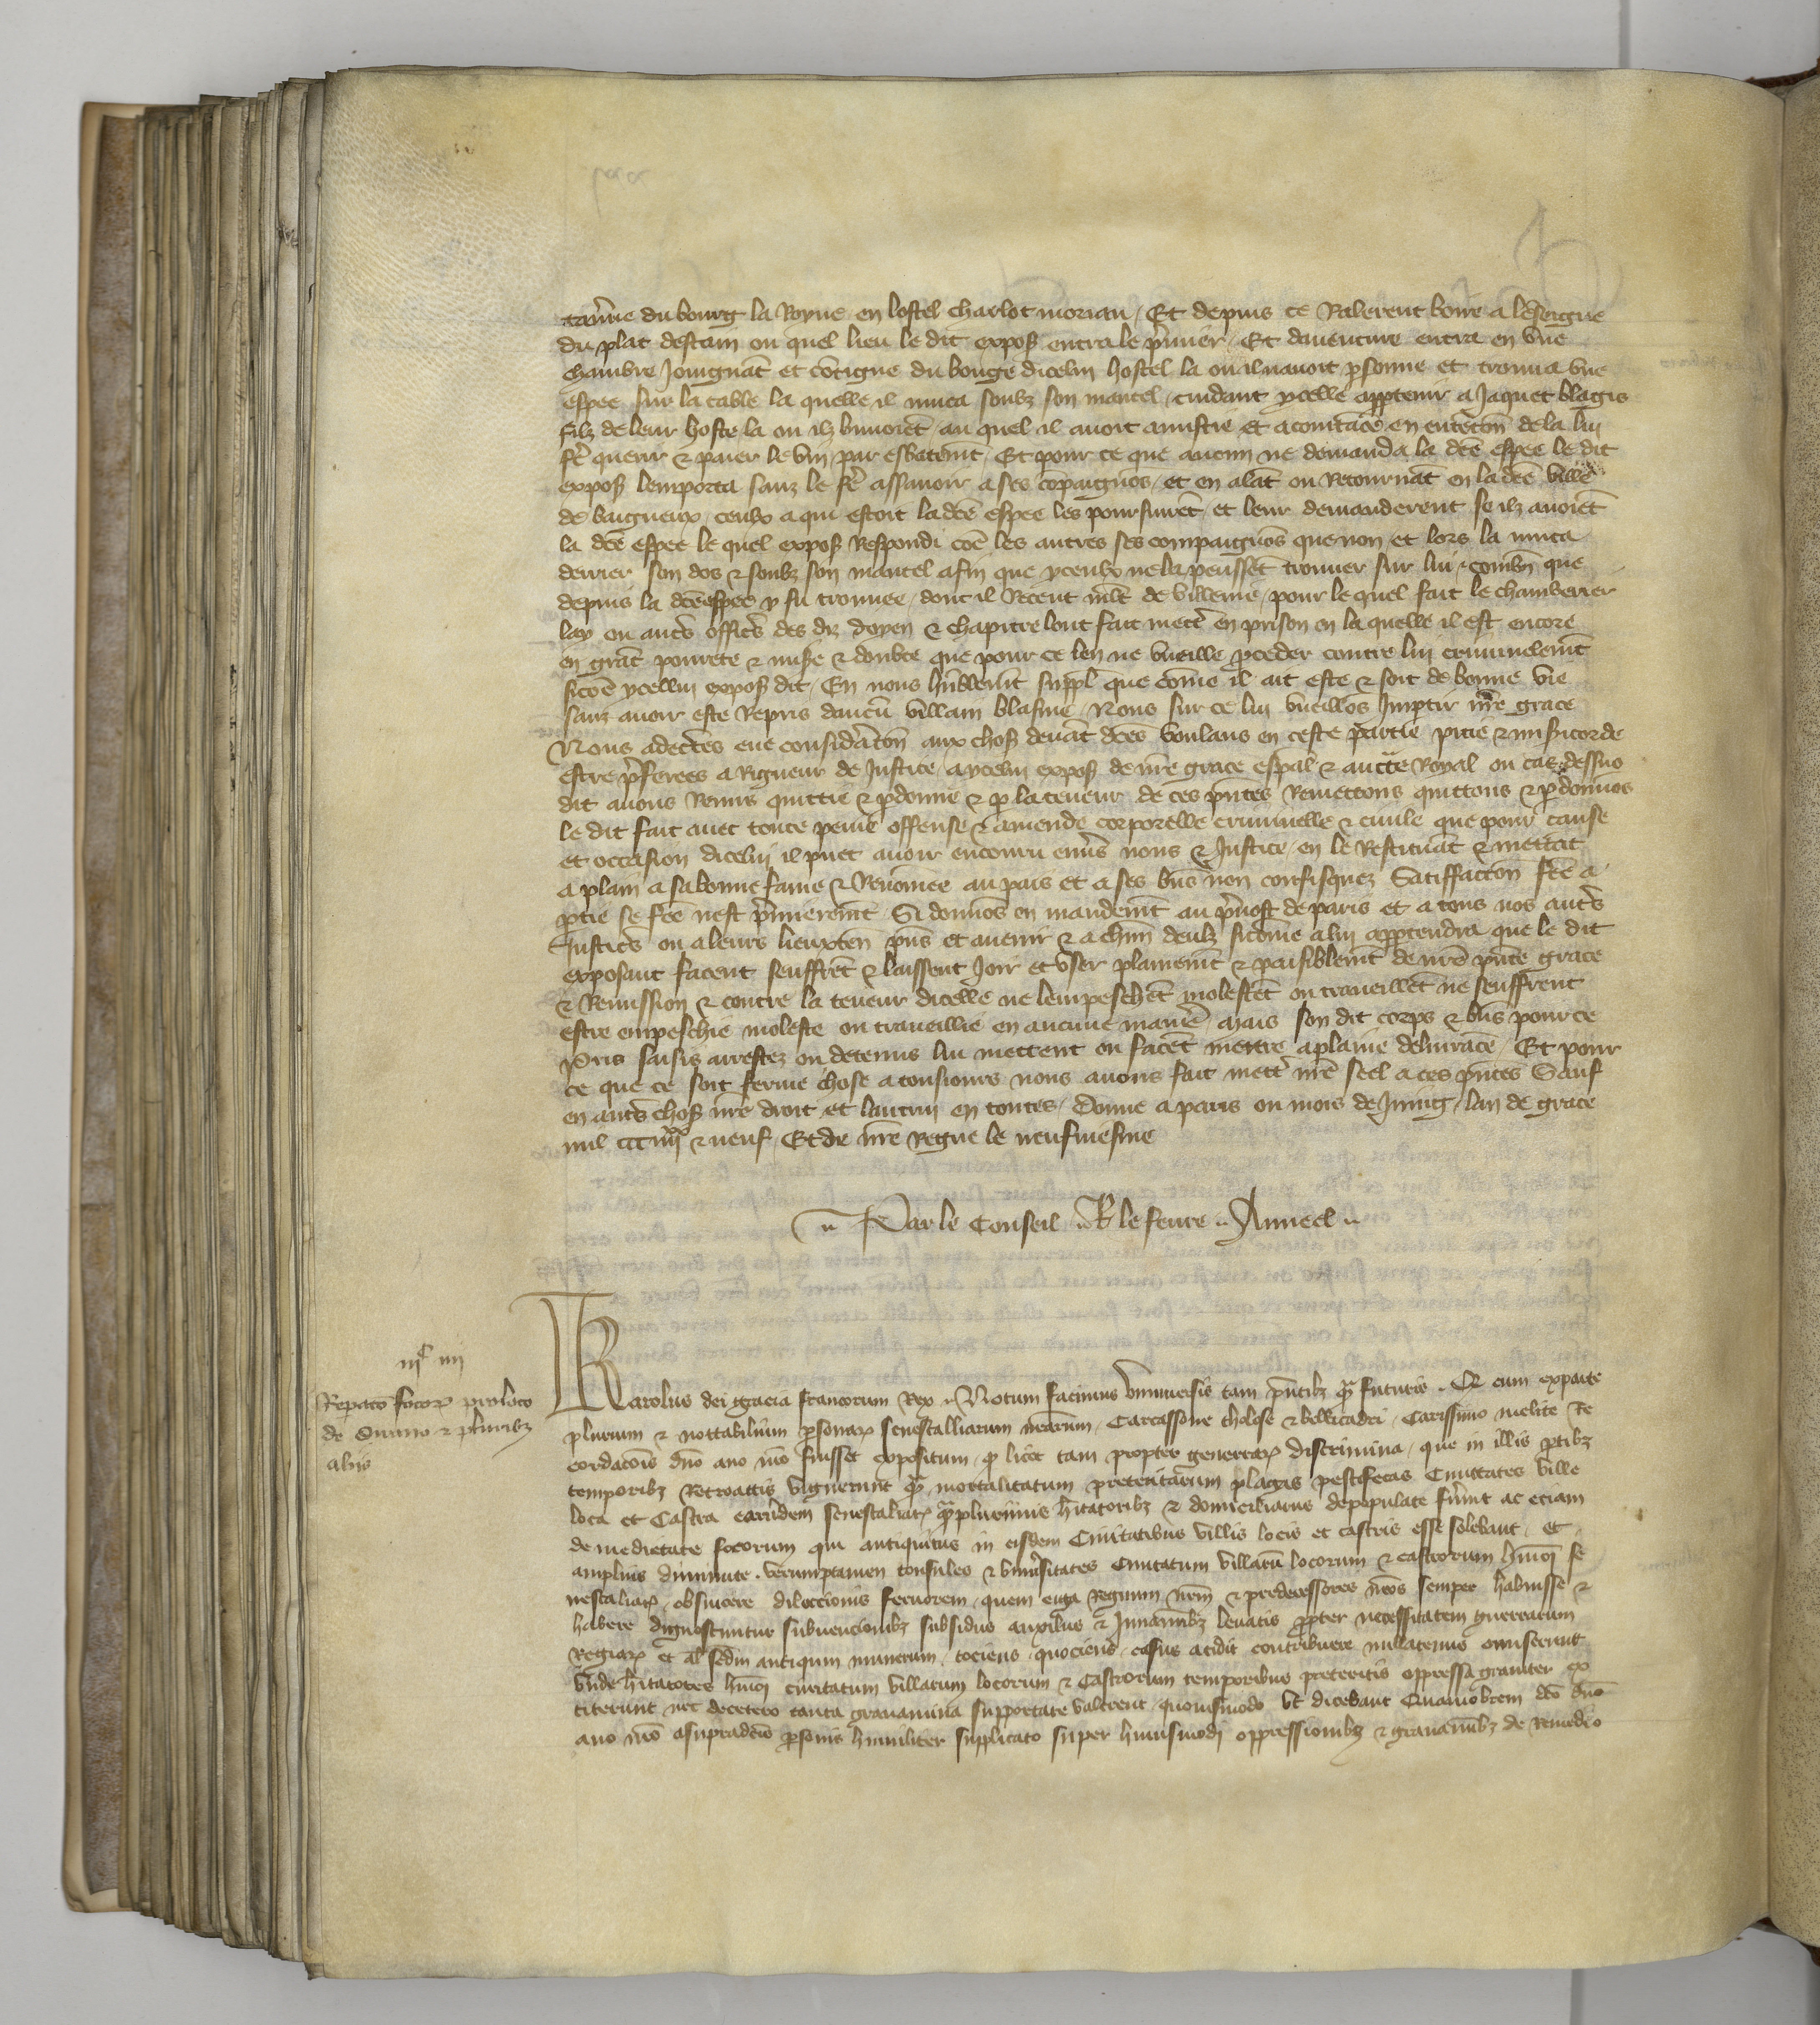 tav̾ne du bourg la Royne en lostel charlot moriau / Et depuis ce Ralerent boire a lenseigne
du plat destain ou quel lieu le dit expos̾ entra le p̾mier / Et daventure entra en vne
chambre Joingnãt et cõtigue du bouge dicelui hostel la ou il nauoit p̱sonne et trouua vne
espee sur la table la quelle il muca soubz son mantel / cuidant ycelle app̱tenir a Jaquet blagis
filz de leur hoste la ou ilz buuoiẽt / au quel il auoit amistie et acointãce en entẽcon̄ de la lui
fẽ querir & paier le vin par esbatem̄t / Et pour ce que aucun ne demanda la dc̄e espee le dit
expos̾ lemporta sanz le fẽ assauoir a ses cõpaignõs / et en alãt ou Retournãt en la dc̄e ville
de baigneux / ceulx a qui estoit la dc̄e espee les poursuirẽt / et leur demanderent se ilz auoiẽt
la dc̄e espee le quel expos̾ Respondi cõe les autres ses compaignõs que non / et lors la muca
derrier son dos & soubz son mantel afin que yceulx ne la peussẽt trouuer sur lui / & combn̄ que
depuis la dc̄e espee y fu trouuee / dont il Recent ml̄t de villenie / pour le quel fait le chamberier
lay ou aut̾s offic̾s des diz doyen & chapitre lont fait mett̾ en prison en la quelle il est encore
en grãt pourete & mis̾e & doubte que pour ce len ne vueille p̱ceder contre lui criminelem̄t
sicõe ycellui expos̾ dit / En nous hūblem̄t suppl̄ que cõme il ait este & soit de bonne vie
sanz auoir este Repris daucũ villain blasme / Nous sur ce lui vueillõs Imp̱tir nr̄e grace
Nous adecertes eue considerac̄on aux chos̾ deuãt dc̄es voulans en ceste partie pitie & mis̾icorde
estre p̾ferees a Rigueur de Justice / a ycelui expos̾ de nr̄e grace esp̄al & auct̾te Royal ou cas dessus
dit auons Remis quittie & p̱donne & p̱ la teneur de ces pn̄tes Remettons quittons & p̱donnõs
le dit fait auec toute peine offense & amende corporelle criminelle & ciuile que pour cause
et occasion dicelui il puet auoir encouru enu̾s nous & Justice / en le Restituãt & mettãt
a plain a sa bonne fame & Renõmee au pais et a ses bn̄s non confisquez Satiffaccon̄ fc̄e a
p̱tie se fc̄e nest p̾mierem̄t Si donnõs en mandem̄t au p̾uost de paris et a tous nos aut̾s
Justic̾s ou a leurs lieuxten̄ pn̄s et auenir & a chūn deulx sicõme a lui app̱tendra que le dit
exposant facent seuffrẽt & laissent Joir et vser plainem̄t & paisiblem̄t de nr̄e pn̄te grace
& Remission & contre la teneur dicelle ne lempeschẽt molestẽt ou trauueillẽt ne seuffrent
estre empeschie moleste ou traueillie en aucune mañẽ / mais son dit corps & bn̄s pour ce
pris saisis arrestez ou detenus lui mettent ou facẽt mettre a plaine deliurãce / Et pour
ce que ce soit ferme chose a tousiours nous auons fait mett̾ nr̄e seel a ces pn̄tes Sauf
en aut̾s chos̾ nr̄e droit et lautrui en toutes / Donne a paris ou mois de Juing / lan de grace
mil ccc iiijxx & neuf / Et de nr̄e Regne le neufuiesme
Par le Conseil .. R le feure .. Anneel ..
iijc iiij
Repac̄o focoṟ pro loco
de Surano & pluribȝ
aliis
Karolus dei gracia francorum Rex .. Notum facimus vniuersis tam pn̄tibȝ q̾ futuris . Q̱ cum exparte
plurium & nottabilium p̱sonaṟ senescalliarum nr̄arum / Carcassone tholose & bellicadri / Carissimo milite Re
cordac̄õis dn̄o auo nr̄o fuisset expositum / q̱ licet tam propter guerraṟ discrimina / que in illis p̱tibȝ
temporibȝ Retroactis viguerunt q̾ mortalitatum preteritarum plagas pestiferas Ciuitates ville
loca et Castra earūdem senescaliaṟ q̾plurimis h̄itatoribȝ & domiciliariis depopulate fu̾int ac eciam
de medietate focorum qui antiquitus in eisdem Ciuitatibus villis locis et castris esse solebant / et
amplius diminute . verumptamen consules & vniu̾sitates Ciuitatum villarū locorum & castrorum hm̄oi se
nescaliaṟ / ob sincere dileccionis feruorem / quem erga Regnum nr̄m & predecessores nr̄os semper habuisse &
habere dignoscuntur subuencionibȝ subsidiis auxiliis & Juuaminibȝ leuatis p̱pter necessitatem guerrarum
Regiaṟ et al̄ sc̄dm antiqum numerum / tociens / quociens / casus accidit contribuere nullatenus omiserunt
vnde h̄itatores hm̄oi ciuitatum villarum locorum & Castrorum temporibus preteritis oppressa grauiter ex
titerunt nec decetero tanta grauamina supportare valerent quouismodo vt dicebant Quamobrem dc̄o dn̄o
auo nr̄o a supradc̄is p̱sonis humiliter supplicato super huiusmodi oppressionibȝ & grauaminibȝ de Remedio